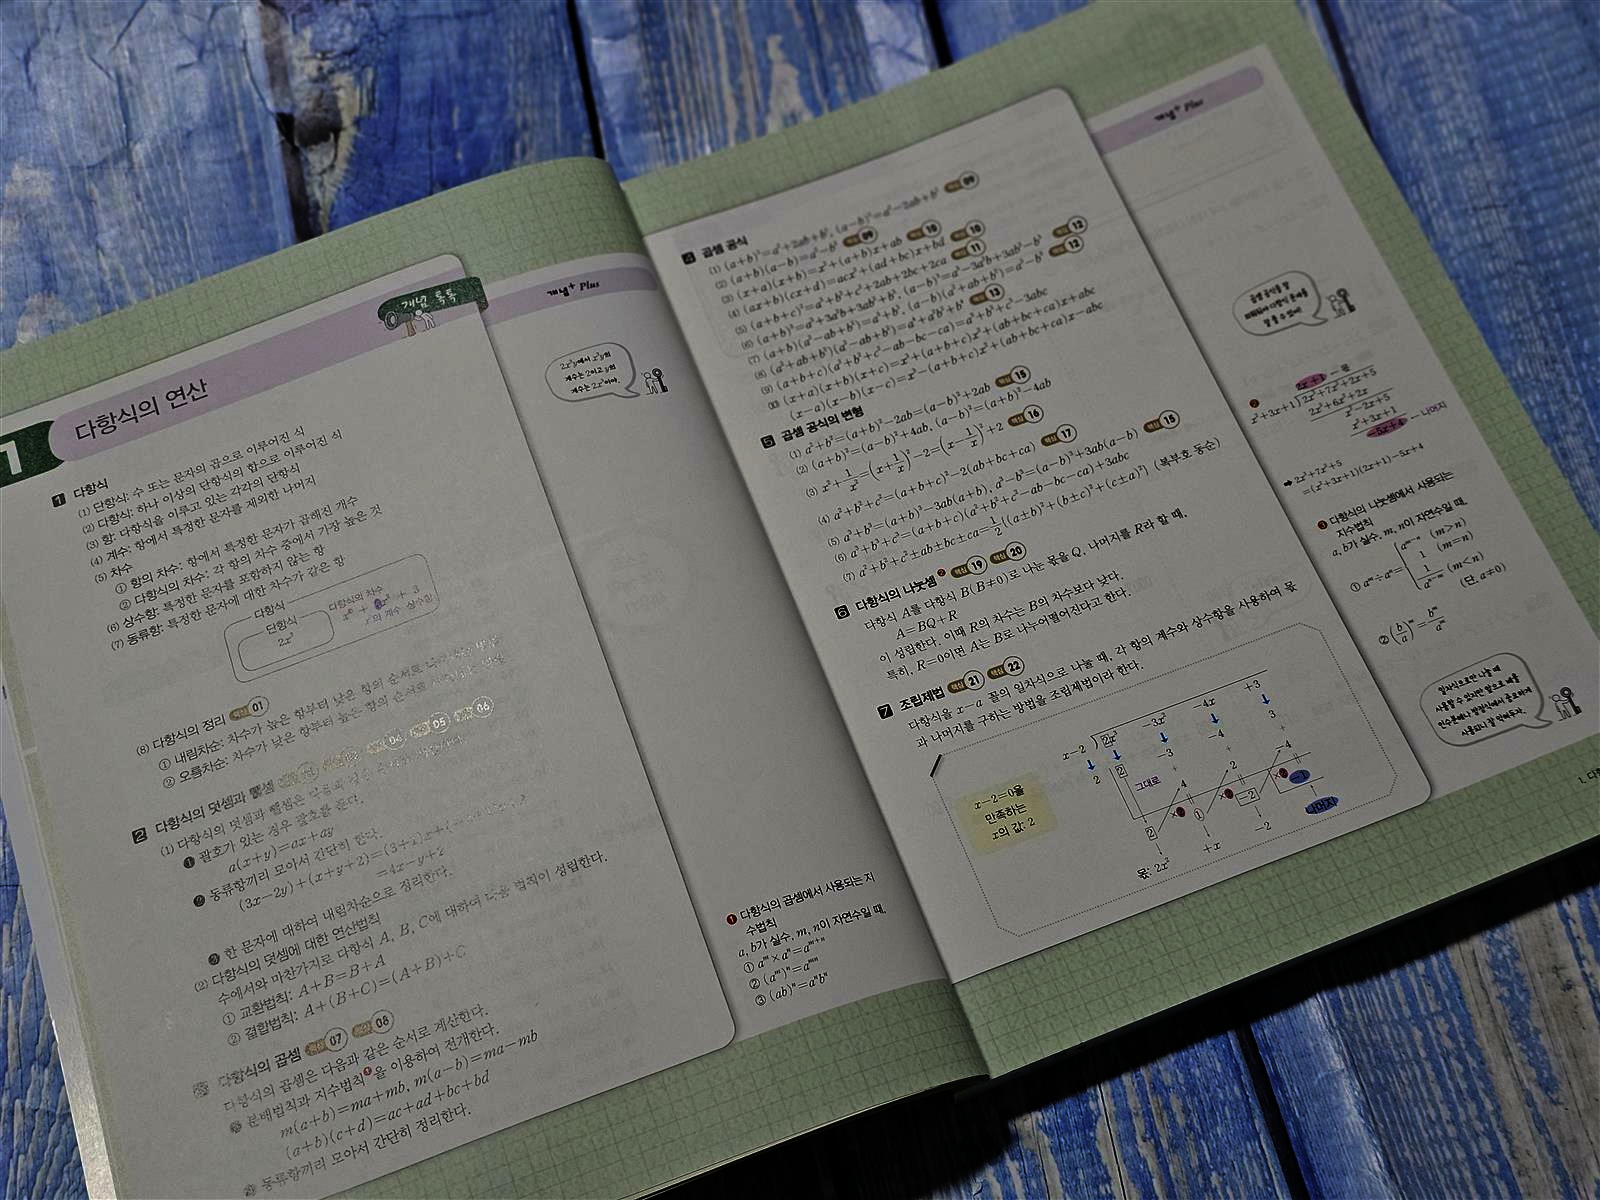 개념 톡톡
1 다항식의 연산
1 다항식
(1) 단항식: 수 또는 문자의 곱으로 이루어진 식
(2) 다항식: 하나 이상의 단항식의 합으로 이루어진 식
(3) 항: 다항식을 이루고 있는 각각의 단항식
(4) 계수: 항에서 특정한 문자를 제외한 나머지
(5) 차수
① 항의 차수: 항에서 특정한 문자가 곱해진 개수
② 다항식의 차수: 각 항의 차수 중에서 가장 높은 것
(6) 상수항: 특정한 문자를 포함하지 않는 항
(7) 동류항: 특정한 문자에 대한 차수가 같은 항
다항식
단항식
2x³
다항식의 차수
x의 계수 상수항
(8) 다항식의 정리 핵심 01
① 내림차순: 차수가 높은 항부터 낮은 항의 순서로
② 오름차순: 차수가 낮은 항부터 높은 항의 순서로
2 다항식의 덧셈과 뺄셈 04 05 06
(1) 다항식의 덧셈과 뺄셈은 다음과 같은
❶ 괄호가 있는 경우 괄호를 푼다.
a(x+y)=ax+ay
❷ 동류항끼리 모아서 간단히 한다.
(3x-2y)+(x+y+2)=(3+1)x+
=4x-y+2
❸ 한 문자에 대하여 내림차순으로 정리한다.
(2) 다항식의 덧셈에 대한 연산법칙
수에서와 마찬가지로 다항식 A, B, C에 대하여 다음 법칙이 성립한다.
① 교환법칙: A+B=B+A
② 결합법칙: A+(B+C)=(A+B)+C
다항식의 곱셈 핵심 07 핵심 08
다항식의 곱셈은 다음과 같은 순서로 계산한다.
분배법칙과 지수법칙❶을 이용하여 전개한다.
m(a+b)=ma+mb, m(a-b)=ma-mb
(a+b)(c+d)=ac+ad+bc+bd
동류항끼리 모아서 간단히 정리한다.
개념⁺ Plus
계수는 2이고
계수는 2x³이야.
❶ 다항식의 곱셈에서 사용되는 지
수법칙
a, b가 실수, m, n이 자연수일 때,
① aᵐ×aⁿ=aᵐ⁺ⁿ
② (aᵐ)ⁿ=aᵐⁿ
③ (ab)ⁿ=aⁿbⁿ
4 곱셈 공식
(1) (a+b)²=a²+2ab+b², (a-b)²=a²-2ab+b² 핵심 09
(2) (a+b)(a-b)=a²-b² 핵심 09
(3) (x+a)(x+b)=x²+(a+b)x+ab 핵심 10
(4) (ax+b)(cx+d)=acx²+(ad+bc)x+bd 핵심 10
(5) (a+b+c)²=a²+b²+c²+2ab+2bc+2ca 핵심 11
(6) (a+b)³=a³+3a²b+3ab²+b³, (a-b)³=a³-3a²b+3ab²-b³ 핵심 12
(7) (a+b)(a²-ab+b²)=a³+b³, (a-b)(a²+ab+b²)=a³-b³ 핵심 12
(8) (a²+ab+b²)(a²-ab+b²)=a⁴+a²b²+b⁴ 핵심 13
(9) (a+b+c)(a²+b²+c²-ab-bc-ca)=a³+b³+c³-3abc
(10) (x+a)(x+b)(x+c)=x³+(a+b+c)x²+(ab+bc+ca)x+abc
(x-a)(x-b)(x-c)=x³-(a+b+c)x²+(ab+bc+ca)x-abc
5 곱셈 공식의 변형
(1) a²+b²=(a+b)²-2ab=(a-b)²+2ab 핵심 15
(2) (a+b)²=(a-b)²+4ab, (a-b)²=(a+b)²-4ab
(3) x²+1/x²=(x+1/x)²-2=(x-1/x)²+2 핵심 16
(4) a²+b²+c²=(a+b+c)²-2(ab+bc+ca) 핵심 17
(5) a³+b³=(a+b)³-3ab(a+b), a³-b³=(a-b)³+3ab(a-b) 핵심 15
(6) a³+b³+c³=(a+b+c)(a²+b²+c²-ab-bc-ca)+3abc
(7) a²+b²+c²±ab±bc±ca=1/2{(a±b)²+(b±c)²+(c±a)²} (복부호 동순)
6 다항식의 나눗셈❷ 핵심 19 핵심 20
다항식 A를 다항식 B(B≠0)로 나눈 몫을 Q, 나머지를 R라 할 때,
A=BQ+R
이 성립한다. 이때 R의 차수는 B의 차수보다 낮다.
특히, R=0이면 A는 B로 나누어떨어진다고 한다.
7 조립제법 핵심 21 핵심 22
다항식을 x-a 꼴의 일차식으로 나눌 때, 각 항의 계수와 상수항을 사용하여 몫
과 나머지를 구하는 방법을 조립제법이라 한다.
x-2=0을
만족하는
x의 값: 2
x-2 ) 2x³ -3x² -4x +3
2 2 -3 -4 3
그대로
4 2 -4
2 1 -2 -1
나머지
몫: 2x² +x -2
개념⁺ Plus
❷
2x+1 — 몫
x²+3x+1 ) 2x³+7x²+2x+5
2x³+6x²+2x
x²-2x+5
x²+3x+1
-5x+4 — 나머지
➡ 2x³+7x²+5
=(x²+3x+1)(2x+1)-5x+4
❸ 다항식의 나눗셈에서 사용되는
지수법칙
a, b가 실수, m, n이 자연수일 때,
① aᵐ÷aⁿ= aᵐ⁻ⁿ (m>n)
1 (m=n)
1/aⁿ⁻ᵐ (m<n)
(단, a≠0)
② (b/a)ᵐ=bᵐ/aᵐ
일차식으로만 나눌 때